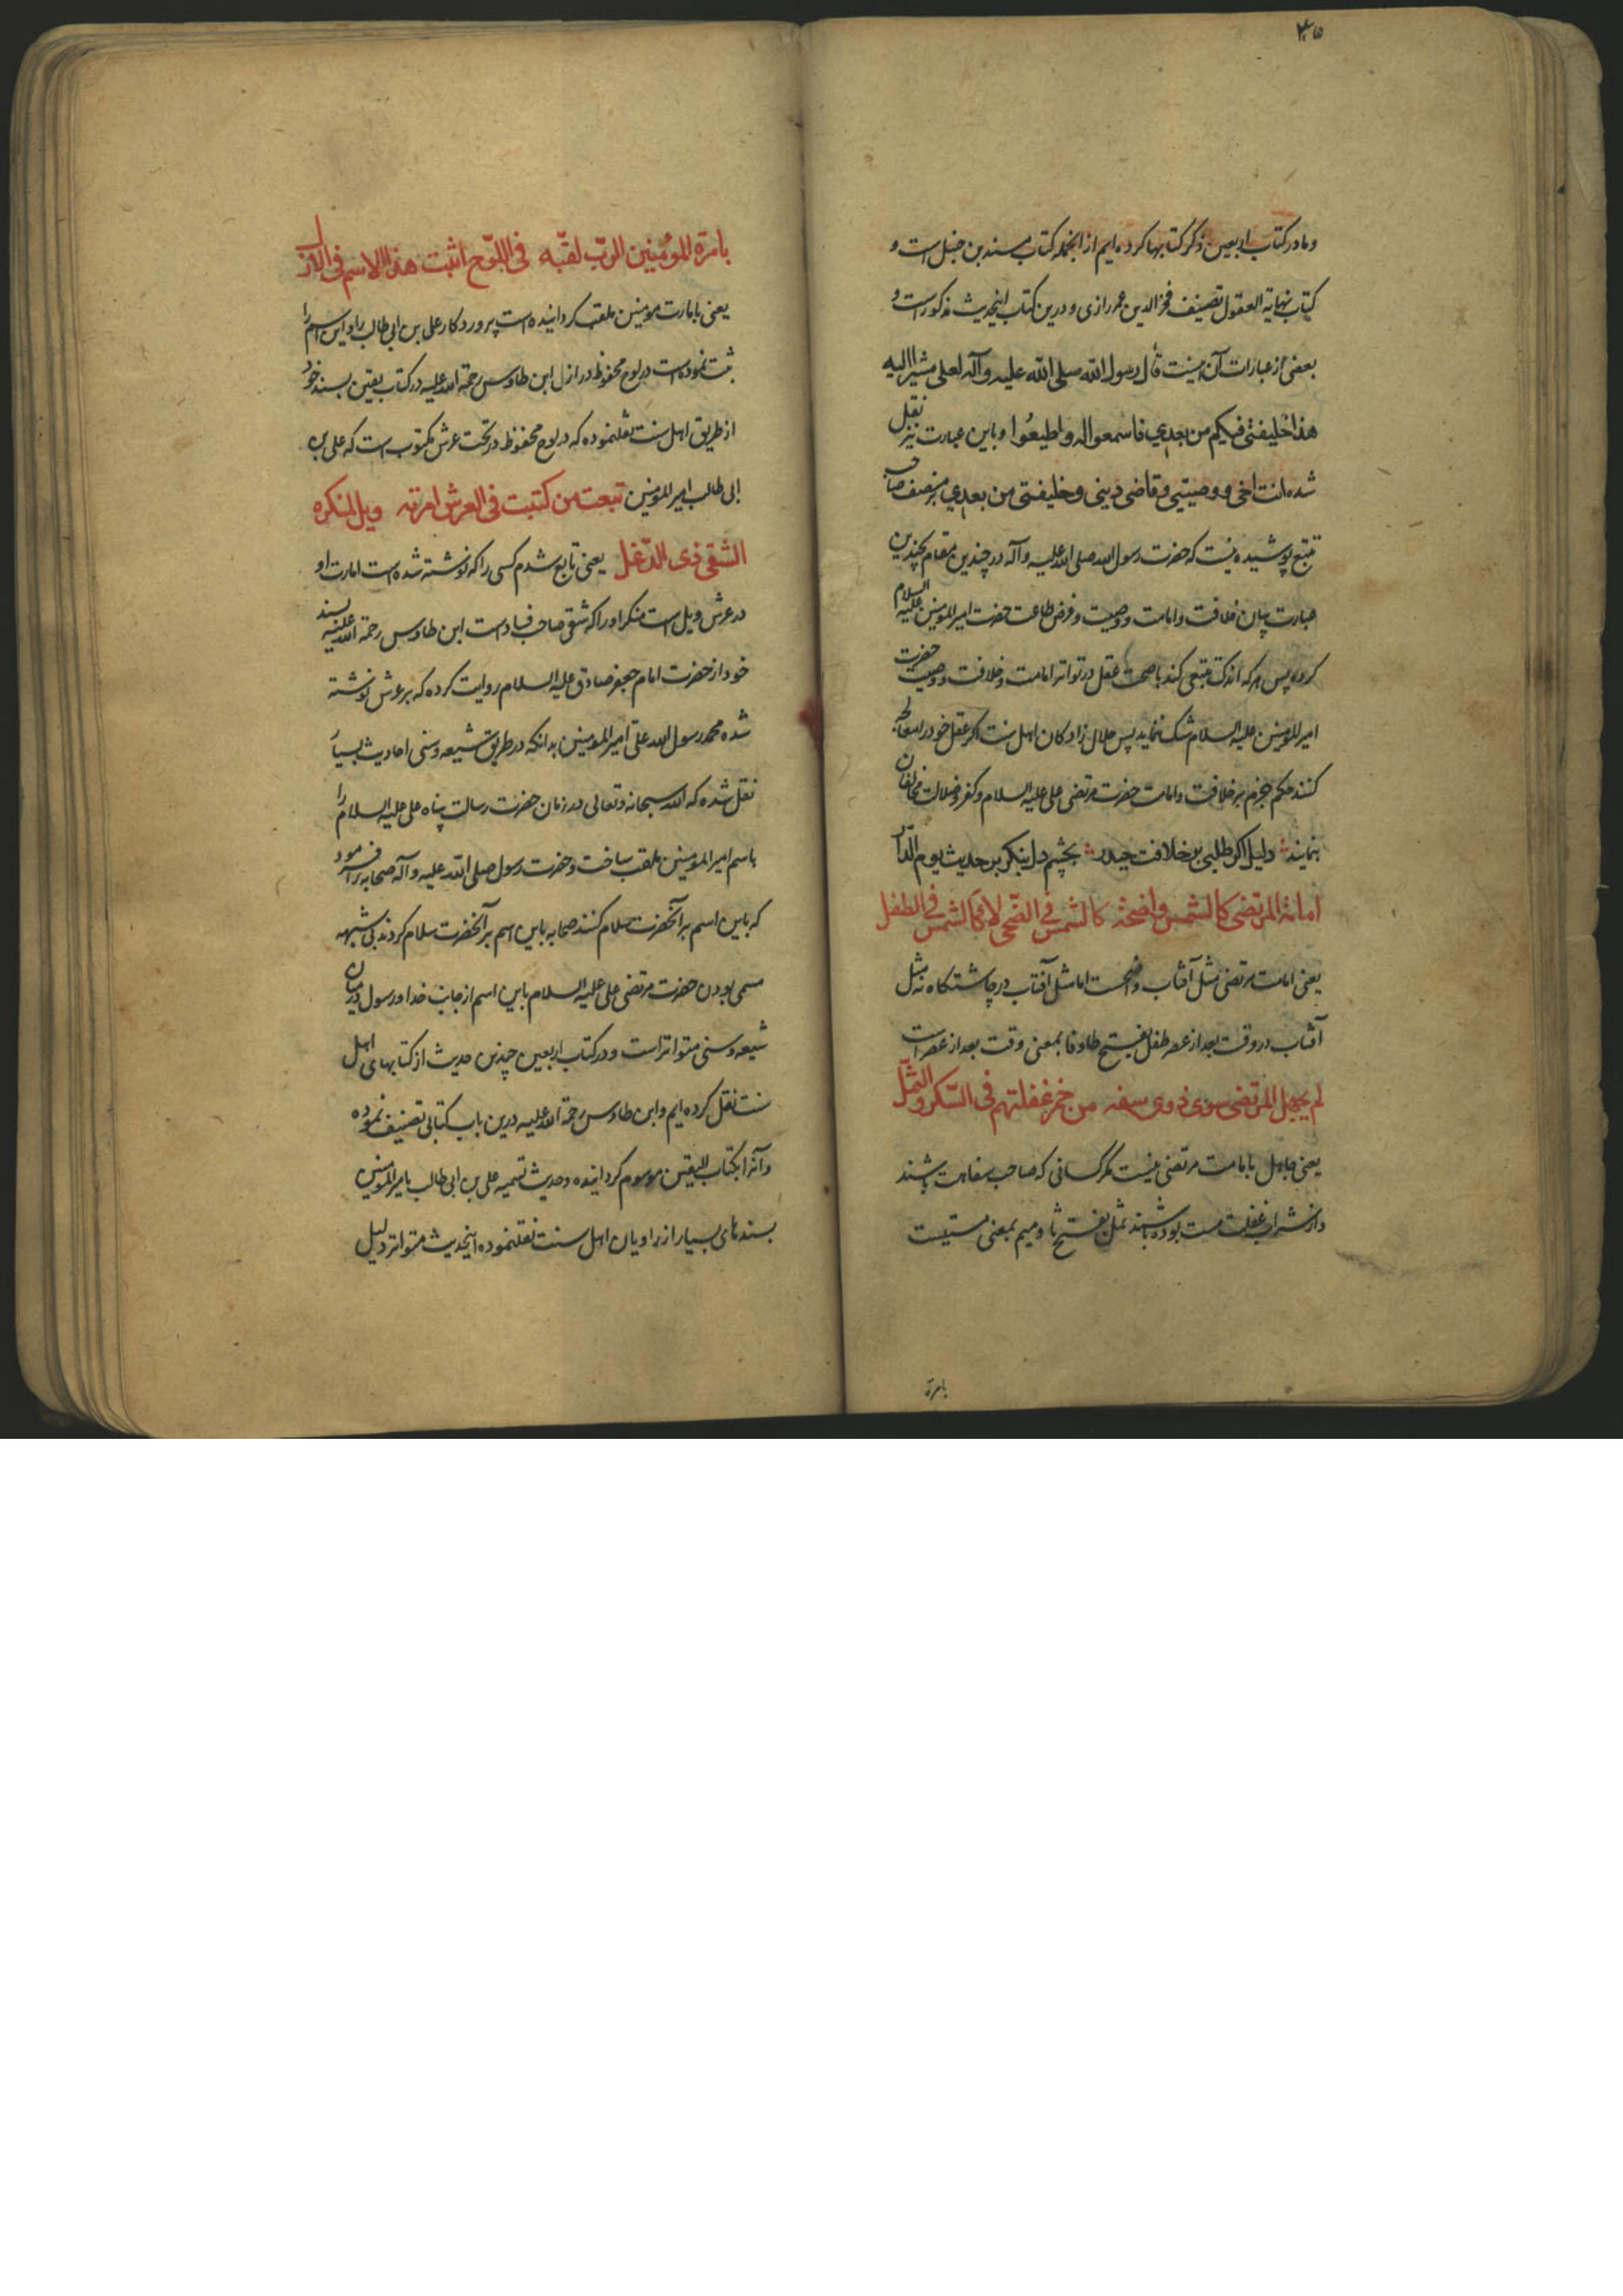 ۴۵
و ما در کتاب اربعین ذکر کتابها کرده ایم از انجمله کتاب مسند بن حنبل است و
کتاب نهایة العقول تصنیف فخر الدین عمر رازی و درین کتب اینحدیث مذکور است و
بعضی از عبارات آن اینست قال رسول الله صلی الله علیه وآله لعلی مشیرا الیه
هذا خلیفتی فیکم من بعدی فاسمعوا له واطیعوا و باین عبارت نیز نقل
شده انت اخی و وصیتی و قاضی دینی و خلیفتی من بعدی بر منصف صاحب
تتبع پوشیده نیست که حضرت رسول الله صلی الله علیه وآله در چندین مقام بچندین
عبارت بیان خلافت و امامت و وصیت و فرض طاعت حضرت امیر المومنین علیه السلام
کرده پس هر که اندک تتبعی کند با صحت عقل در تواتر امامت و خلافت و وصیت حضرت
امیر المومنین علیه السلام شک ننماید پس حلال زادکان اهل سنت اکر عقل خود را معالجه
کنند حکم جزم بر خلافت و امامت حضرت مرتضی علی علیه السلام و کفر و ضلالت مخالفان
بنمایند دلیل اکر طلبی بر خلافت حیدر بچشم دل بنکر بر حدیث یوم الدار
امامة المرتضی کالشمس واضحة کالشمس فی الضحی لا کالشمس فی الطفل
یعنی امامت مرتضی مثل آفتاب واضحست اما مثل آفتاب در چاشتکاه نه مثل
آفتاب در وقت بعد از عصر طفل بفتح طا و فا بمعنی وقت بعد از عصر است
لم یجهل المرتضی سوی ذوی سفه من خمر غفلتهم فی السکر والثمل
یعنی جاهل بامامت مرتضی نیست مکر کسانی که صاحب سفاهت باشند
و از شراب غفلت مست بوده باشند ثمل بفتح ثا و میم بمعنی مستیست
بامرة
بامرة المؤمنین الرب لقبه فی اللوح اثبت هذا الاسم فی الازل
یعنی بامارت مومنین ملقب کردانیده است پروردکار علی بن ابی طالب را و این اسم را
ثبت نموده است در لوح محفوظ در ازل ابن طاوس رحمة الله علیه در کتاب یقین بسند خود
از طریق اهل سنت نقلنموده که در لوح محفوظ در تحت عرش مکتوب است که علی بن
ابی طالب امیر المومنین تبعت من کتبت فی العرش امرته ویل لمنکره
الشقی ذی الدغل یعنی تابع شدم کسی را که نوشته شده است امارت او
در عرش ویل است منکر او را که شقی صاحب فساد است ابن طاوس رحمة الله علیه بسند
خود از حضرت امام جعفر صادق علیه السلام روایت کرده که بر عرش نوشته
شده محمد رسول الله علی امیر المومنین بدانکه در طریق شیعه و سنی احادیث بسیار
نقل شده که الله سبحانه و تعالی در زمان حضرت رسالت پناه علی علیه السلام را
باسم امیر المومنین ملقب ساخت و حضرت رسول صلی الله علیه وآله صحابه را فرمود
که باین اسم بر آنحضرت سلام کنند صحابه باین اسم بر آنحضرت سلام کردند بی شبهه
مسمی بودن حضرت مرتضی علی علیه السلام باین اسم از جانب خدا و رسول در میان
شیعه و سنی متواتر است و در کتاب اربعین چندین حدیث از کتابهای اهل
سنت نقل کرده ایم و ابن طاوس رحمة الله علیه درین باب کتابی تصنیف نموده
و آنرا بکتاب الیقین موسوم کردانیده و حدیث تسمیه علی بن ابی طالب بامیر المومنین
بسندهای بسیار از راویان اهل سنت نقلنموده اینحدیث متواتر دلیل